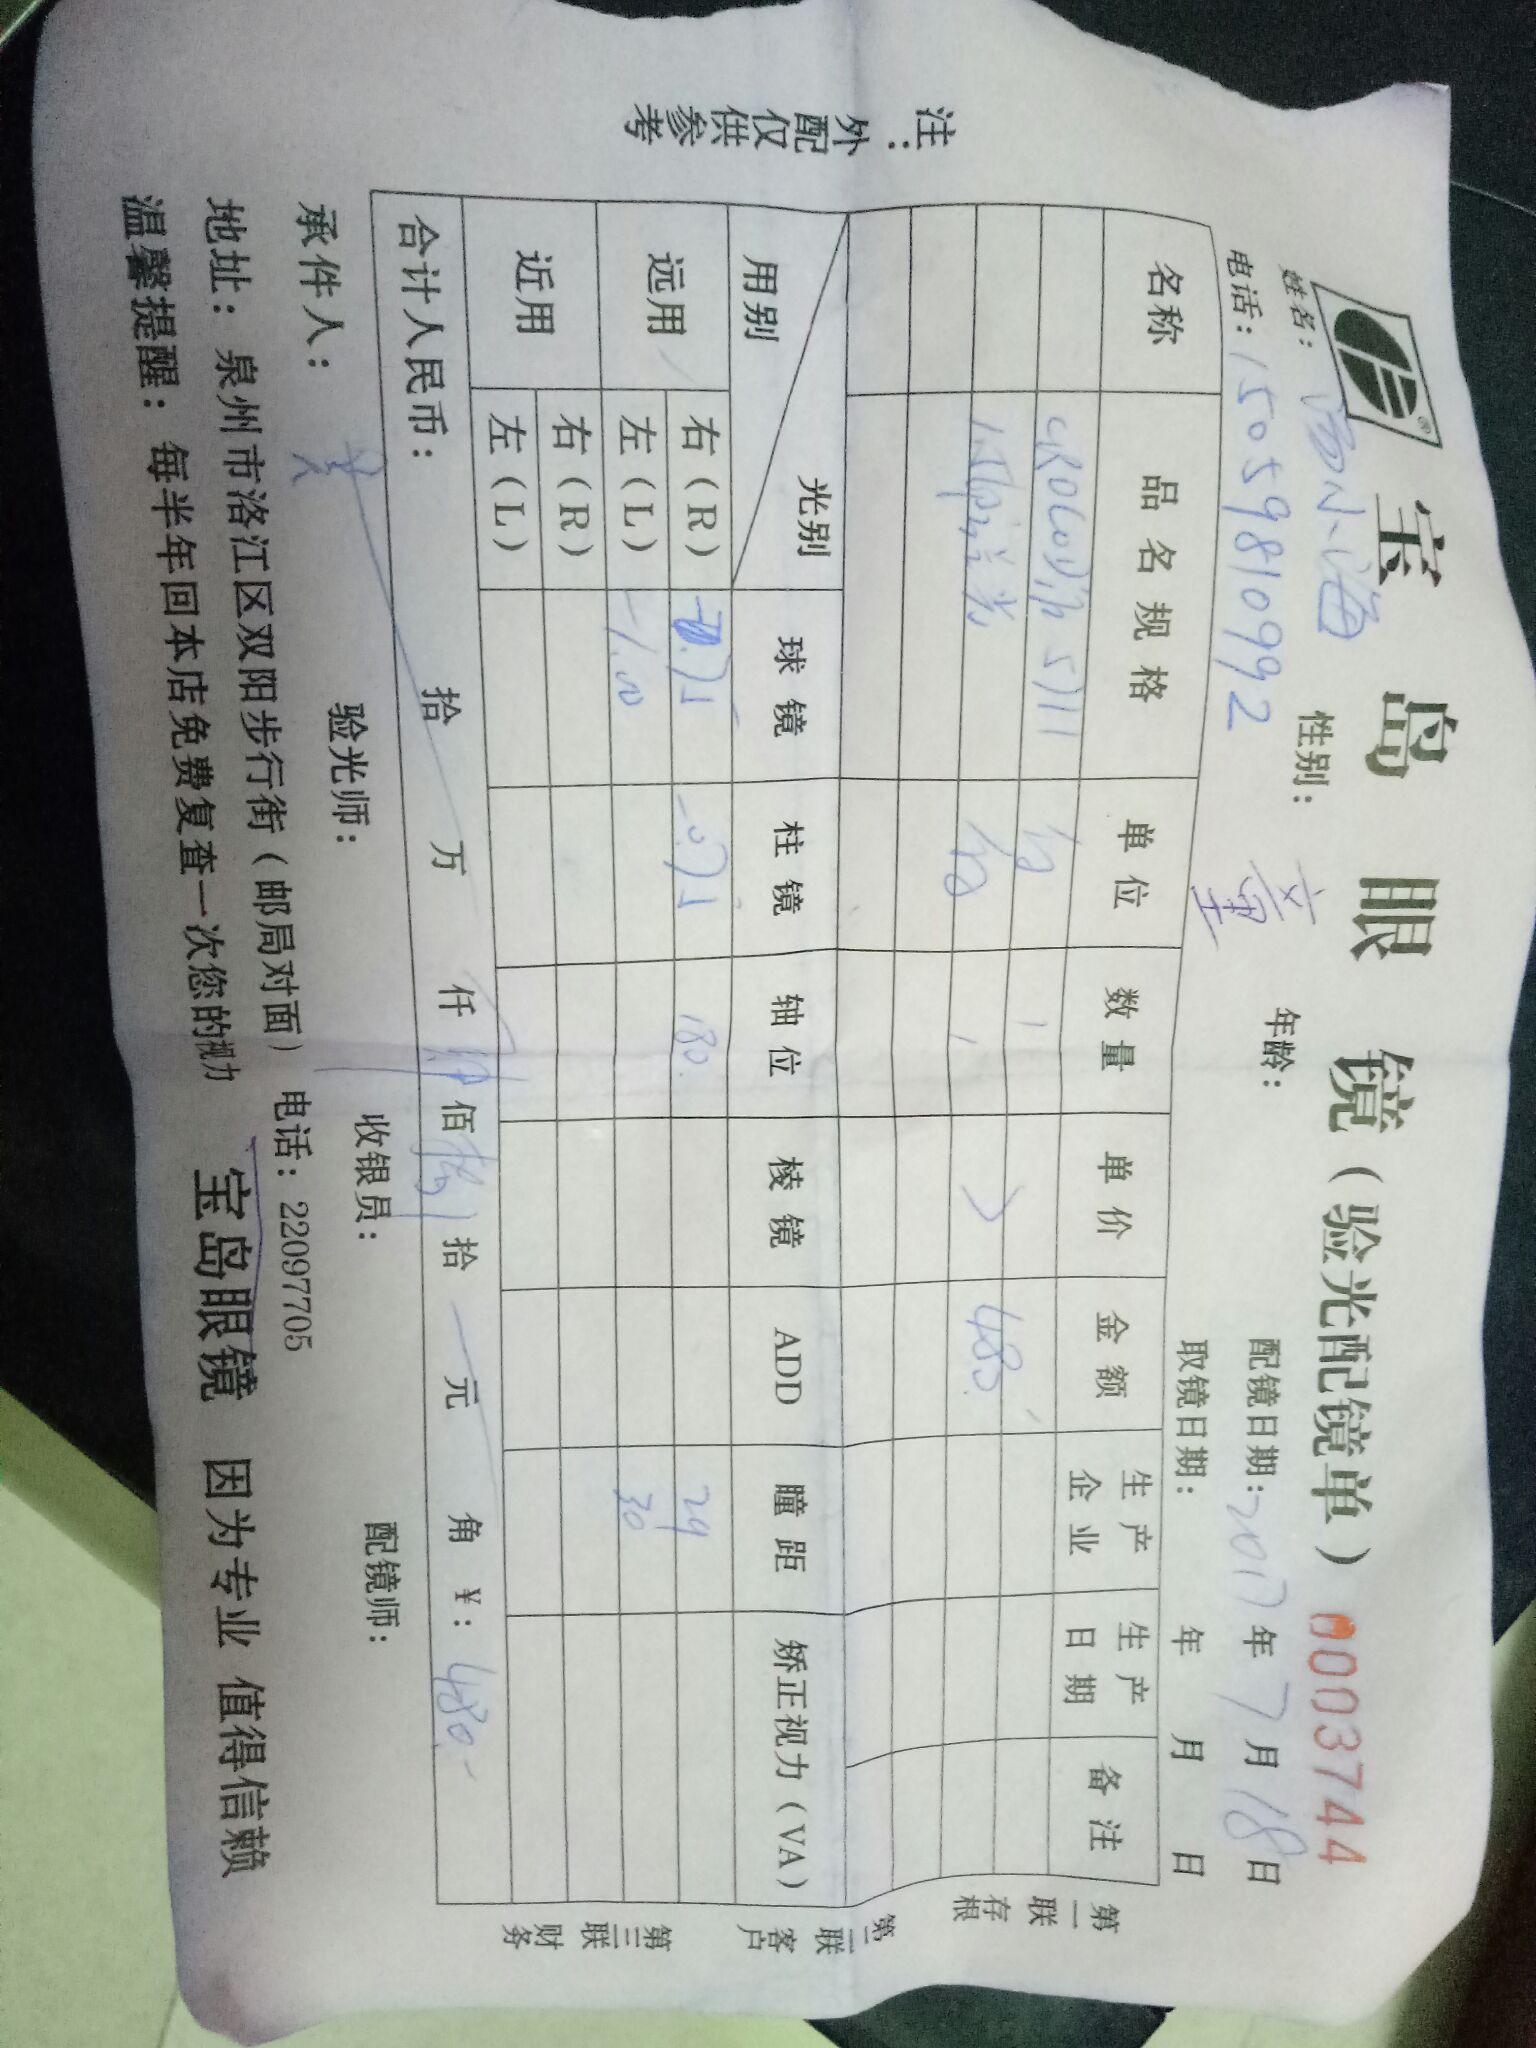 宝岛眼镜（验光配镜单） 0003744
姓名： 小海 性别： 年龄： 配镜日期：2017年7月18日
电话：15059810992 童 取镜日期： 年 月 日
名称 品名规格 单位 数量 单价 金额 生产企业 生产日期 备注
5711 付 1
1.56 付 1 480
用别 光别 球镜 柱镜 轴位 棱镜 ADD 瞳距 矫正视力（VA）
远用 右（R） -0.75 -0.75 180 29
左（L） -1.00 30
近用 右（R）
左（L）
合计人民币： 拾 万 仟 肆佰捌拾 元 角 ¥：480.-
承件人： 验光师： 收银员： 配镜师：
地址：泉州市洛江区双阳步行街（邮局对面） 电话：22097705
温馨提醒：每半年回本店免费复查一次您的视力 宝岛眼镜 因为专业 值得信赖
注：外配仅供参考
第一联存根
第二联客户
第三联财务